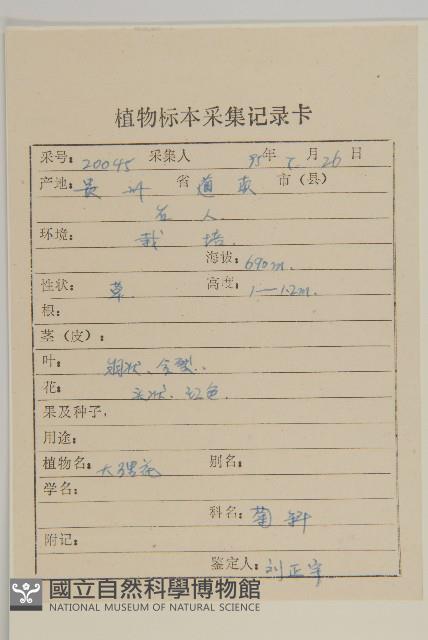 植物标本采集记录卡
采号: 20045 采集人 95年 月 26日
产地: 贵州 省 道真 市(县)
环境: 栽培.
海拔: 690m.
性状: 草. 高度: 1—1.2m.
根:
茎(皮):
叶: 全裂.
花: 红色.
果及种子,
用途:
植物名: 大 别名:
学名:
科名: 菊科
附记:
鉴定人: 刘正宇
國立自然科學博物館
NATIONAL MUSEUM OF NATURAL SCIENCE